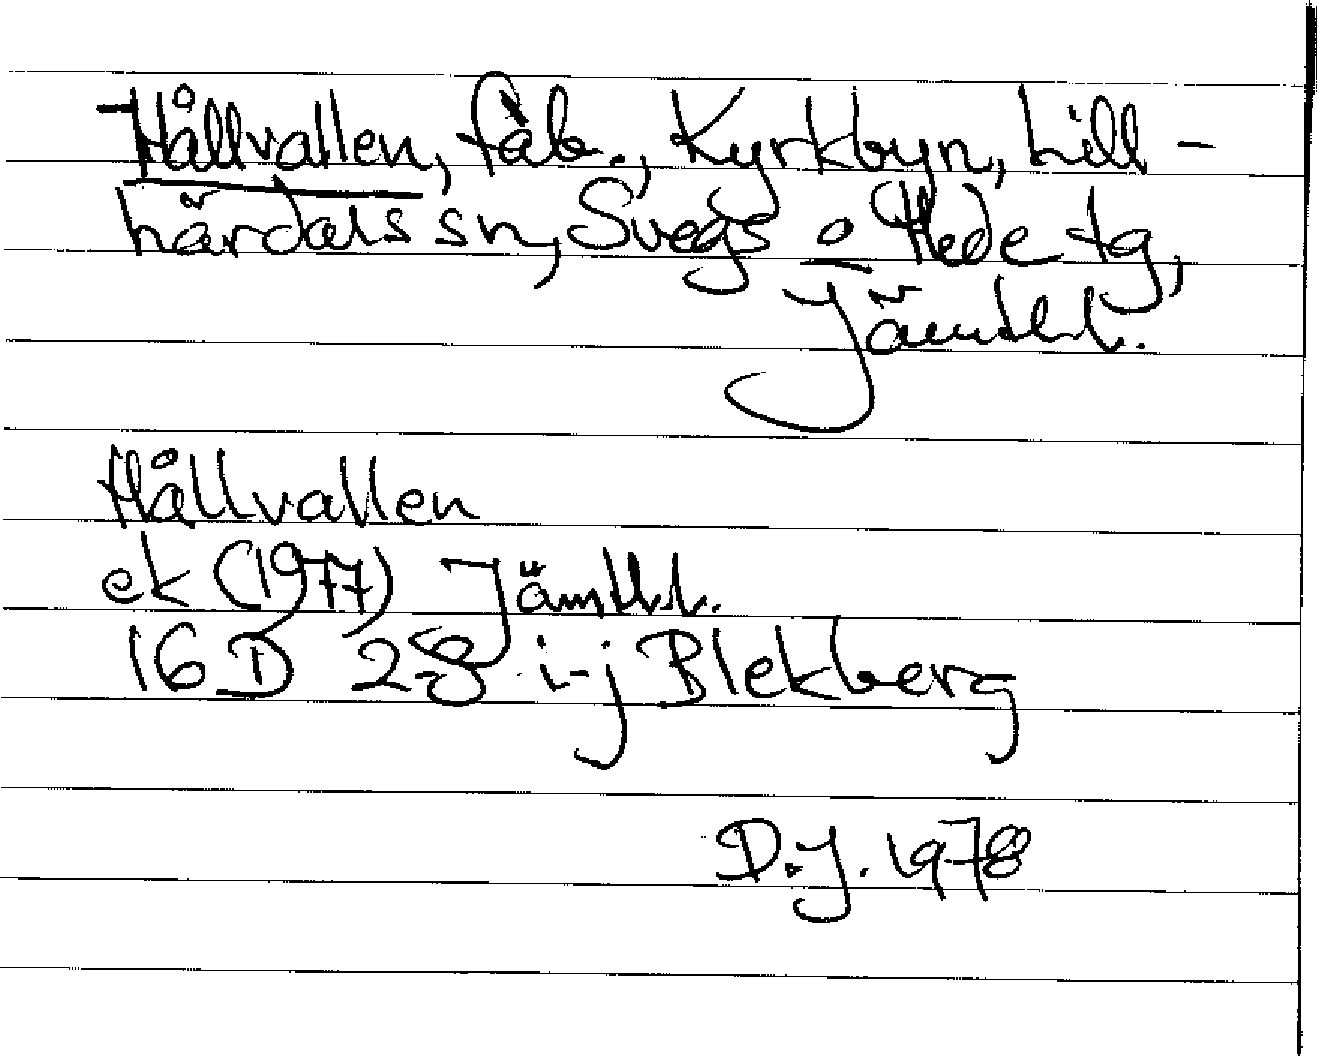 Hållvallen, fäb., Kyrkbyn, Lill-
härdals sn, Svegs o Hede tg,
Jämtl. l.
Hållvallen
ek (1977) Jämtl. l.
16 D 2-3 i-j Blekberg
D.J. 1978